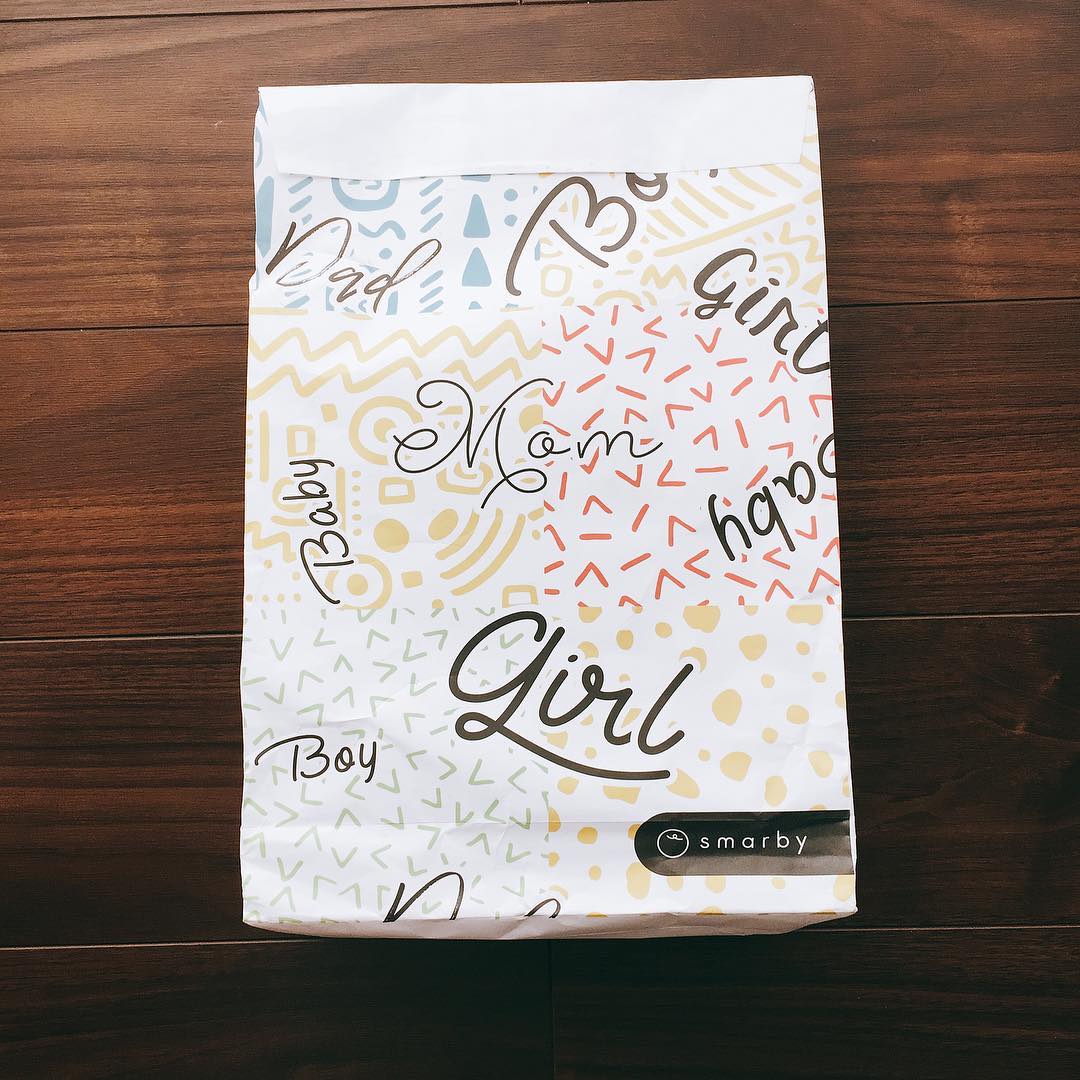 Dad
Bo
Girl
Mom
Baby
aby
Girl
Boy
smarby
D